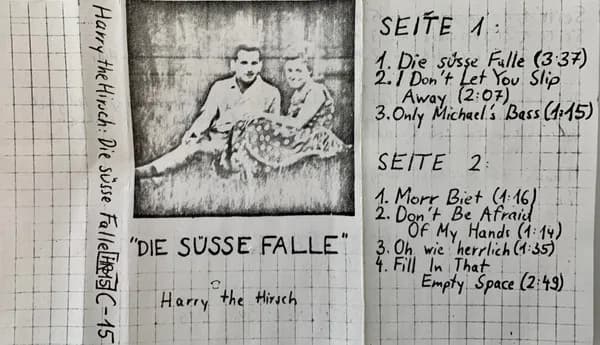 Harry the Hirsch: Die süsse Falle C-15
"DIE SÜSSE FALLE"
Harry the Hirsch
SEITE 1:
1. Die süsse Falle (3:37)
2. I Don't Let You Slip
Away (2:07)
3. Only Michael's Bass (1:15)
SEITE 2:
1. Morr Biet (1:16)
2. Don't Be Afraid
Of My Hands (1:14)
3. Oh wie herrlich (1:35)
4. Fill In That
Empty Space (2:49)